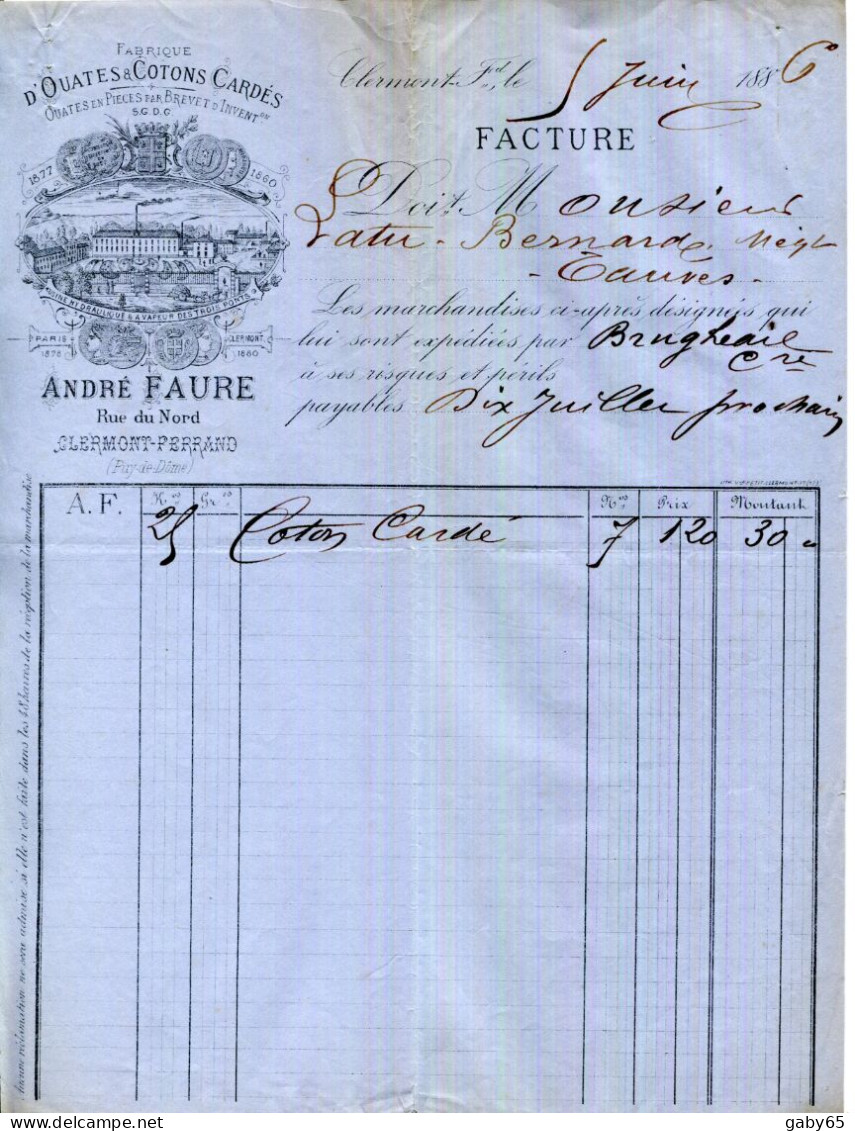 FABRIQUE
D'OUATES & COTONS CARDÉS
OUATES EN PIECES PAR BREVET D'INVENT^on
S.G.D.G.
1877 1880
USINE HYDRAULIQUE & A VAPEUR DES TROIS PONTS
PARIS CLERMONT
1878 1880
ANDRÉ FAURE
Rue du Nord
CLERMONT-FERRAND
(Puy-de-Dôme)
Clermont-Fd, le 5 Juin 1886
FACTURE
Doit Monsieur
Bernard Négt
Tauves
Les marchandises ci-après désignées qui
lui sont expédiées par
à ses risques et périls
payables Dix Juillet prochain
A.F. K^os Gr^es N^os Prix Montant
25 Coton Cardé 7 120 30 "
Aucune réclamation ne sera admise si elle n'est faite dans les 48 heures de la réception de la marchandise
gaby65